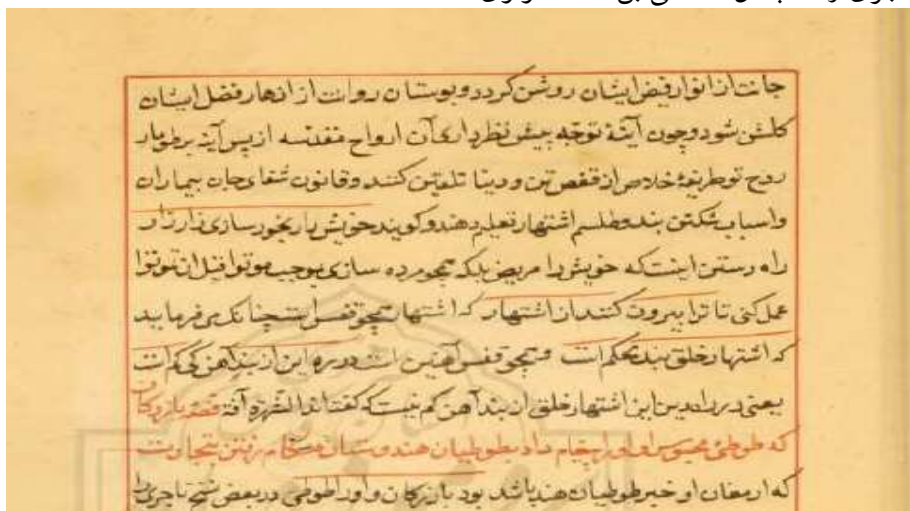 جانت از انوار فیض ایشان روشن گردد و بوستان روانت از ازهار فضل ایشان
کلشن شود و چون آینهٔ توجه پیش نظر داری آن ارواح مقدسه از پس آینه بر طومار
روح تو طریقهٔ خلاص از قفص تن و دینا تلقین کنند و قانون شفای جان بیماران
و اسباب شکتن بند و طلسم اشتهار تعلیم دهند و کویند خویش را رنجور سازی زار زار
راه رستن اینست که خویش را مریض بلکه همچو مرده سازی بموجب موتوا قبل ان تموتوا
عمل کنی تا ترا بیرون کنند از اشتهار که اشتهار همچو قفس است چنانکه می فرماید
که اشتهار خلق بند محکم است و همچو قفس آهنین است در ره این از بند آهن کی کم است
یعنی در راه دین این اشتهار خلق از بند آهن کم نیست که گفته اند الشهرة آفة قصهٔ بازرکان
که طوطی محبوس او او را پیغام داد بطوطیان هندوستان هنکام رفتن بتجارت
که ارمغان او خبر طوطیان هند باشد بود بازرکان و او را طوطی در بعض نسخ تاجری را